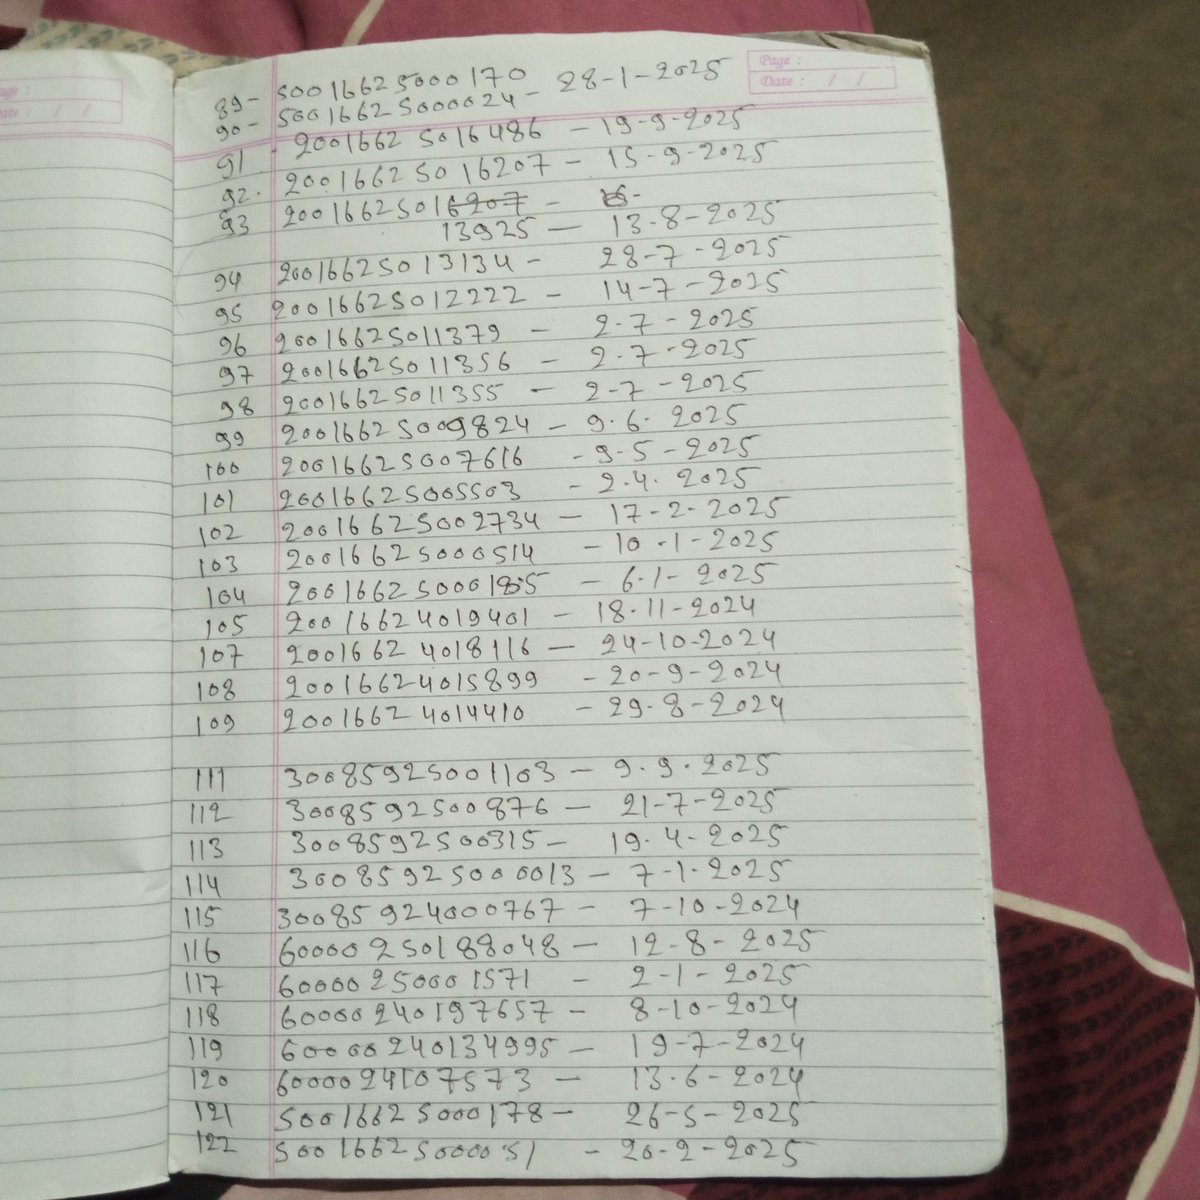 Page :
Date : / /
89- 50016625000170
90- 50016625000024 - 28-1-2025
91. 20016625016486 - 19-9-2025
92. 20016625016207 - 15-9-2025
93 20016625016207 -
13925 - 13.8-2025
94 20016625013134 - 28-7-2025
95 20016625012222 - 14-7-2025
96 20016625011379 - 2.7-2025
97 20016625011356 - 2.7-2025
98 20016625011355 - 2-7-2025
99 20016625009824 - 9.6.2025
100 20016625007616 - 9-5-2025
101 20016625005503 - 2.4.2025
102 20016625002734 - 17-2-2025
103 20016625000514 - 10.1-2025
104 20016625000185 - 6.1-2025
105 20016624019401 - 18.11-2024
107 20016624018116 - 24-10-2024
108 20016624015899 - 20-9-2024
109 20016624014410 - 29.8-2024
111 30085925001103 - 9.9.2025
112 3008592500876 - 21-7-2025
113 3008592500315 - 19.4-2025
114 30085925000013 - 7-1-2025
115 30085924000767 - 7-10-2024
116 60000250188048 - 12-8-2025
117 60000250001571 - 2-1-2025
118 60000240197657 - 8-10-2024
119 60000240134995 - 19-7-2024
120 - 13.6-2024
121 50016625000178 - 26-5-2025
122 50016625000051 - 20-2-2025